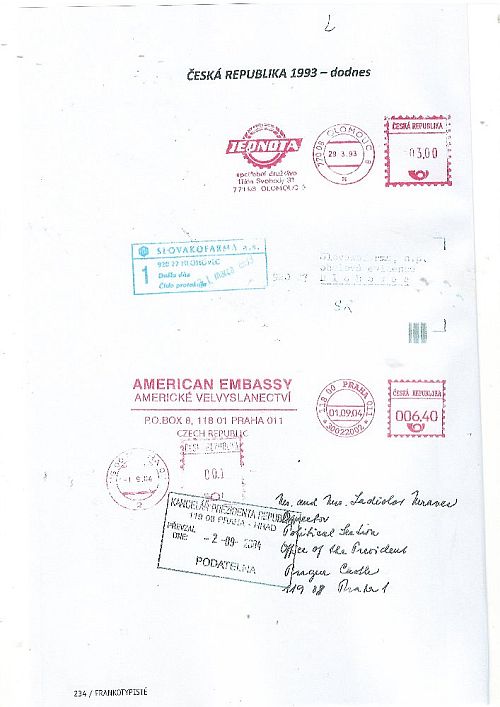 ČESKÁ REPUBLIKA 1993 – dodnes
JEDNOTA
spotřební družstvo
771 58 OLOMOUC
770 08 OLOMOUC 8
29.3.93
ČESKÁ REPUBLIKA
03,00
SLOVAKOFARMA a.s.
920 27 HLOHOVEC
1
Došlo dňa
Číslo protokolu
SR
AMERICAN EMBASSY
AMERICKÉ VELVYSLANECTVÍ
P.O.BOX 8, 118 01 PRAHA 011
CZECH REPUBLIC
118 00 PRAHA 011
01.09.04
30022002
ČESKÁ REPUBLIKA
006,40
-1.9.04
2
KANCELÁŘ PREZIDENTA REPUBLIKY
119 08 PRAHA - HRAD
PŘEVZAL
DNE:
-2-09-2004
PODATELNA
Mr. and Mrs. Ladislav Mravec
Director
Political Section
Office of the President
Prague Castle
119 08 Praha 1
234 / FRANKOTYPISTÉ